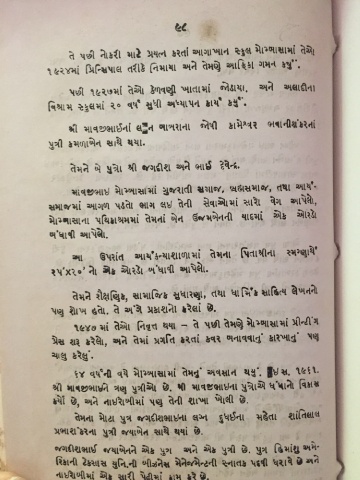 ૯૮
તે પછી નોકરી માટે પ્રયત્ન કરતાં આગાખાન સ્કુલ મોમ્બાસામાં તેઓ
૧૯૨૪માં પ્રિન્સિપાલ તરીકે નિમાયા અને તેમણે આફ્રિકા ગમન કર્યું.
પછી ૧૯૨૭માં તેઓ કેળવણી ખાતામાં જોડાયા. અને અલાદીના
વિશ્રામ સ્કુલમાં ૨૦ વર્ષ સુધી અધ્યાપન કાર્ય કર્યું.
શ્રી માવજીભાઈનાં લગ્ન ભાભરાના જોષી કામેશ્વર ભવાનીશંકરનાં
પુત્રી કમળાબેન સાથે થયા.
તેમને બે પુત્રો શ્રી જગદીશ અને ભાઈ દેવેન્દ્ર.
માવજીભાઇ મોમ્બાસામાં ગુજરાતી સમાજ, બ્રહ્મસમાજ, તથા આર્ય-
સમાજમાં આગળ પડતો ભાગ લઇ તેની સેવાઓમાં સારો વેગ આપેલો,
મોમ્બાસાના પથિકાશ્રમમાં તેમનાં બેન ઉજમબેનની યાદમાં એક ઓરડો
બંધાવી આપેલો.
આ ઉપરાંત આર્યકન્યાશાળામાં તેમના પિતાશ્રીના સ્મરણાર્થે
૨૫'×૨૦' નો એક ઓરડો બંધાવી આપેલો.
તેમને શૈક્ષણિક, સામાજિક સુધારણા, તથા ધાર્મિક સાહિત્ય લેખનનો
પણ શોખ હતો. તે અંગે પ્રકાશનો કરેલાં છે.
૧૯૪૭ માં તેઓ નિવૃત્ત થયા - તે પછી તેમણે મોમ્બાસામાં પ્રીન્ટીંગ
પ્રેસ શરૂ કરેલો, અને તેમાં પ્રગતિ કરતાં કવર બનાવવાનું કારખાનું પણ
ચાલુ કરેલું.
૬૪ વર્ષની વયે મોમ્બાસામાં તેમનું અવસાન થયું. ઈ.સ. ૧૯૬૧.
શ્રી માવજીભાઇને ત્રણ પુત્રીઓ છે. શ્રી માવજીભાઇના પુત્રોએ ધંધાનો વિકાસ
કર્યો છે, અને નાઇરોબીમાં પણ તેની શાખા ખોલી છે.
તેમના મોટા પુત્ર જગદીશભાઇના લગ્ન દુધઈના મહેતા શાંતિલાલ
પ્રભાશંકરના પુત્રી જયાબેન સાથે થયાં છે.
જગદીશભાઇ જયાબેનને એક પુત્ર અને એક પુત્રી છે. પુત્ર હિમાંશુ અમે-
રિકાની ટેક્સાસ યુનિ.ની બીઝનેસ મેનેજમેન્ટની સ્નાતક પદવી ધરાવે છે અને
નાઇરોબીમાં એક સારી પેઢીમાં કામ કરે છે.